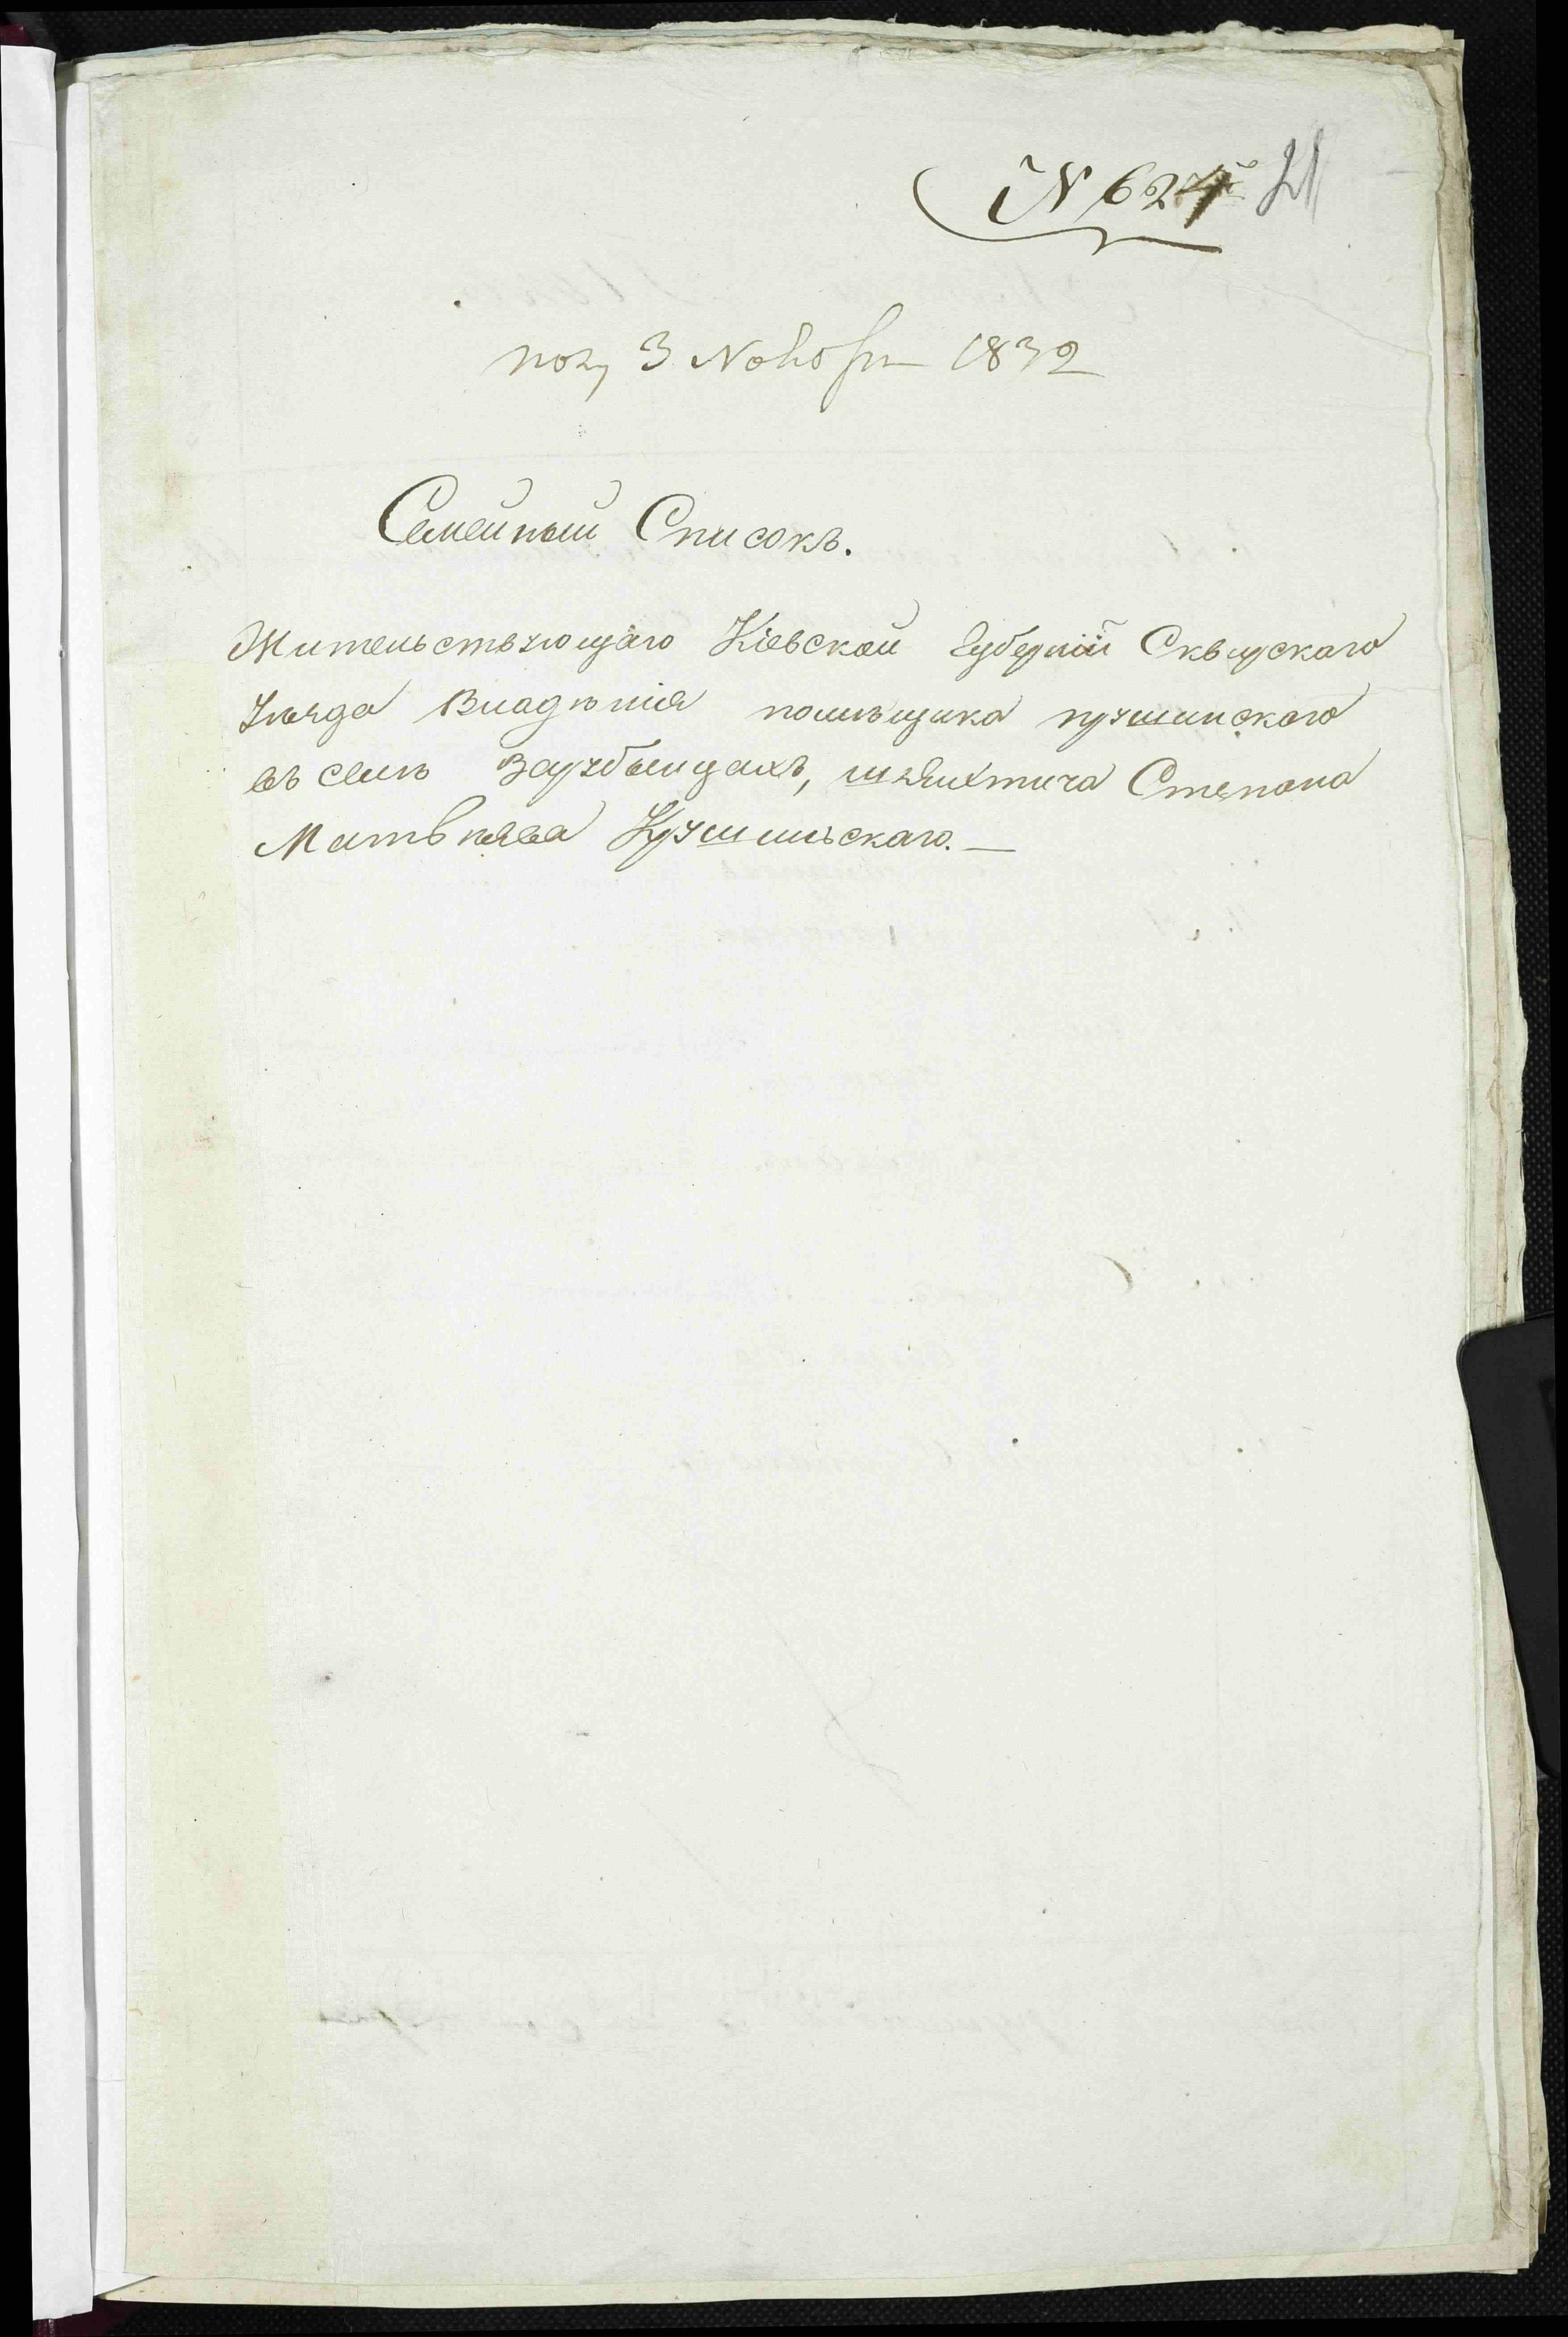 N 624й 21
пол, 3 Ноября 1832
Семейный Списокъ.
Жительствующаго Кіевской Губерніи Сквирскаго
Уѣзда Владѣнія помѣщика
въ селѣ Зарубынцахъ, шляхтича Степана
Матвѣева Крушинскаго. —